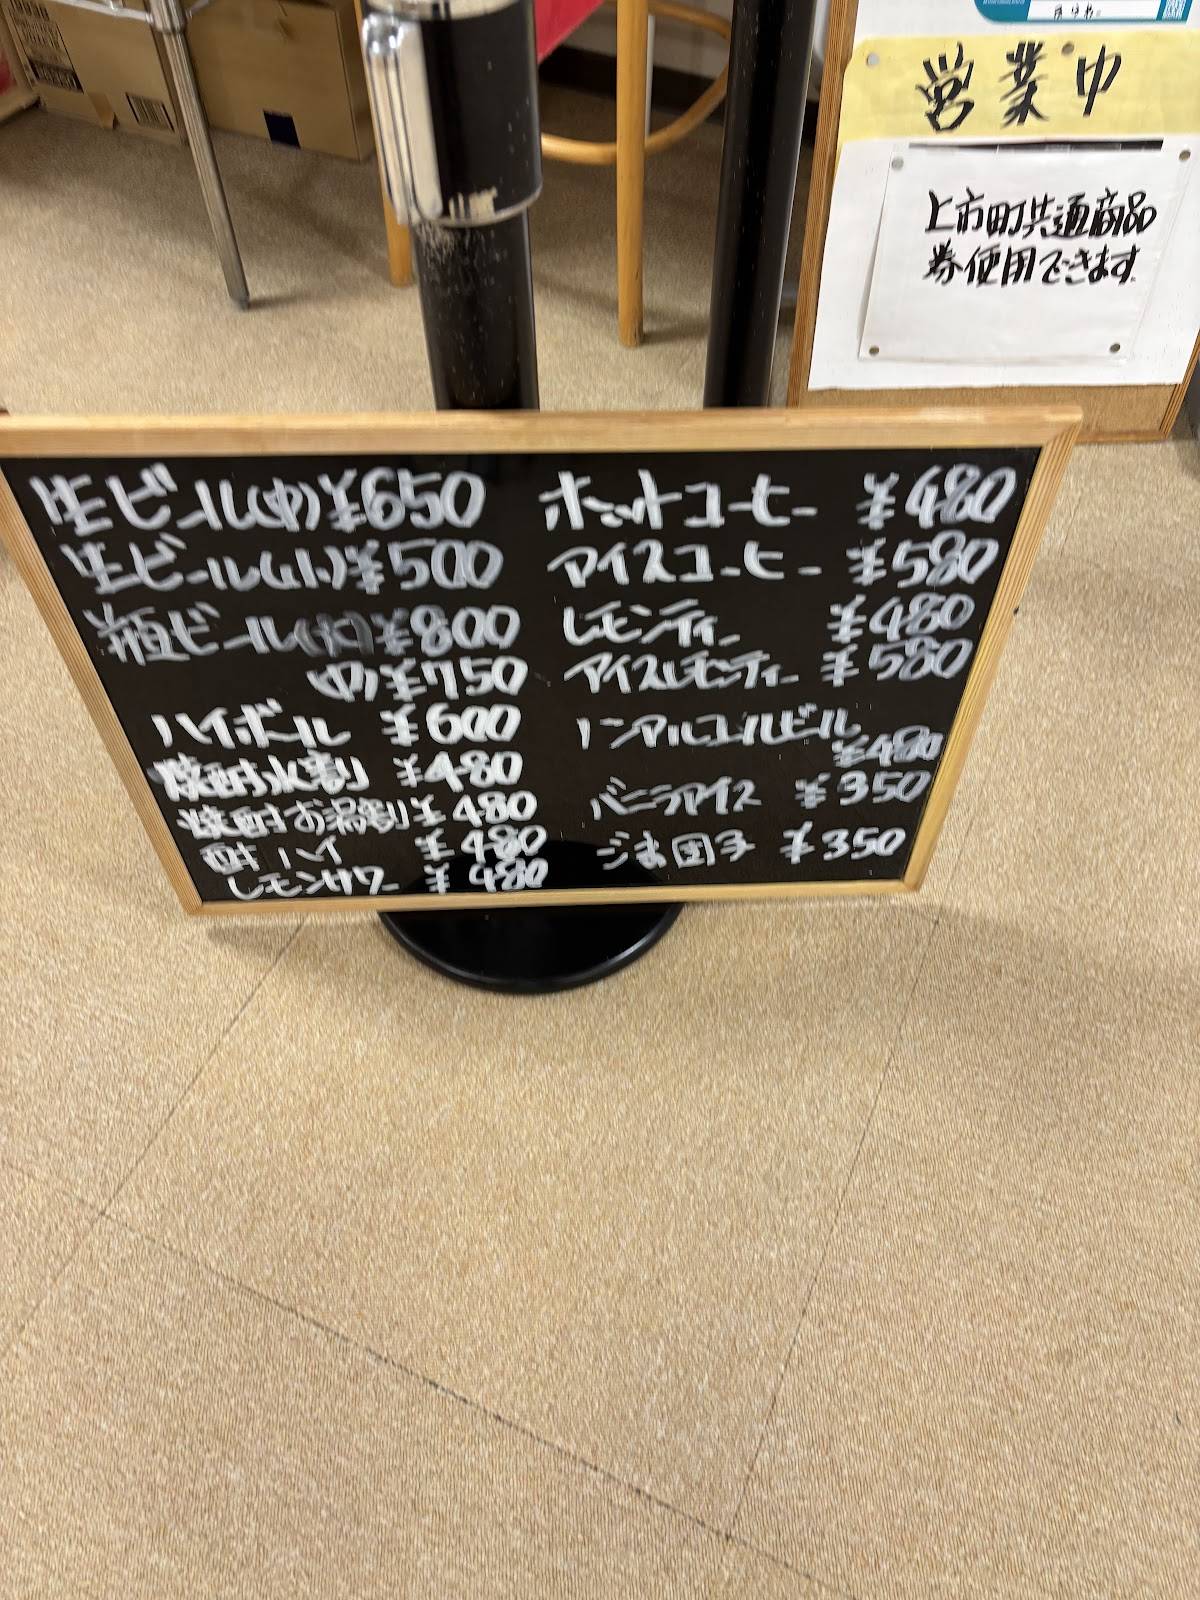 営業中
上市町共通商品
券使用できます
生ビール(中)¥650
生ビール(小)¥500
瓶ビール(大)¥800
(中)¥750
ハイボール ¥600
焼酎水割 ¥480
焼酎お湯割 ¥480
酎ハイ ¥480
レモンサワー ¥480
ホットコーヒー ¥480
アイスコーヒー ¥580
レモンティー ¥480
アイスレモンティー ¥580
ノンアルコールビール
¥480
バニラアイス ¥350
ごま団子 ¥350